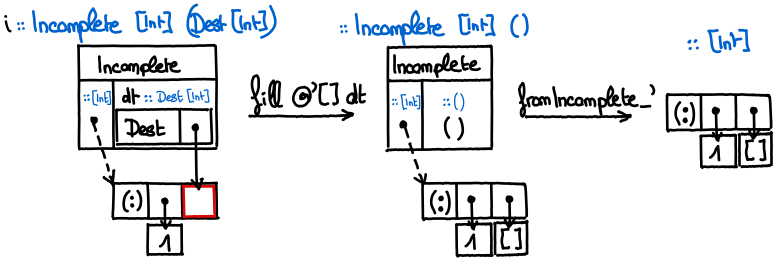 i :: Incomplete [Int] (Dest [Int])
Incomplete
:: [Int] dt :: Dest [Int]
Dest
(:)
1
fill @'[] dt
:: Incomplete [Int] ()
Incomplete
:: [Int] :: ()
()
(:)
1 []
fromIncomplete_'
:: [Int]
(:)
1 []